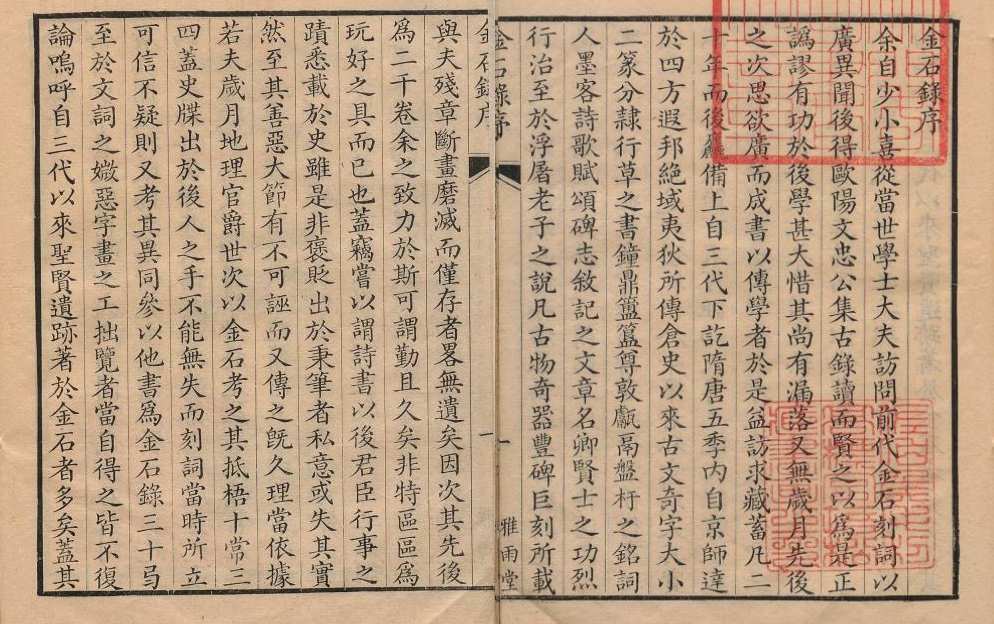 金石錄序
余自少小喜從當世學士大夫訪問前代金石刻詞以
廣異聞後得歐陽文忠公集古錄讀而賢之以爲是正
譌謬有功於後學甚大惜其尚有漏落又無歲月先後
之次思欲廣而成書以傳學者於是益訪求藏蓄凡二
十年而後麤備上自三代下訖隋唐五季內自京師達
於四方遐邦絕域夷狄所傳倉史以來古文奇字大小
二篆分隸行草之書鐘鼎簠簋尊敦甗鬲盤杅之銘詞
人墨客詩歌賦頌碑志敘記之文章名卿賢士之功烈
行治至於浮屠老子之說凡古物奇器豐碑巨刻所載
金石錄序
一
雅雨堂
金石錄序
一
與夫殘章斷畫磨滅而僅存者畧無遺矣因次其先後
爲二千卷余之致力於斯可謂勤且久矣非特區區爲
玩好之具而已也蓋竊嘗以謂詩書以後君臣行事之
蹟悉載於史雖是非褒貶出於秉筆者私意或失其實
然至其善惡大節有不可誣而又傳之旣久理當依據
若夫歲月地理官爵世次以金石考之其抵梧十常三
四蓋史牒出於後人之手不能無失而刻詞當時所立
可信不疑則又考其異同參以他書爲金石錄三十卷
至於文詞之媺惡字畫之工拙覽者當自得之皆不復
論嗚呼自三代以來聖賢遺跡著於金石者多矣蓋其